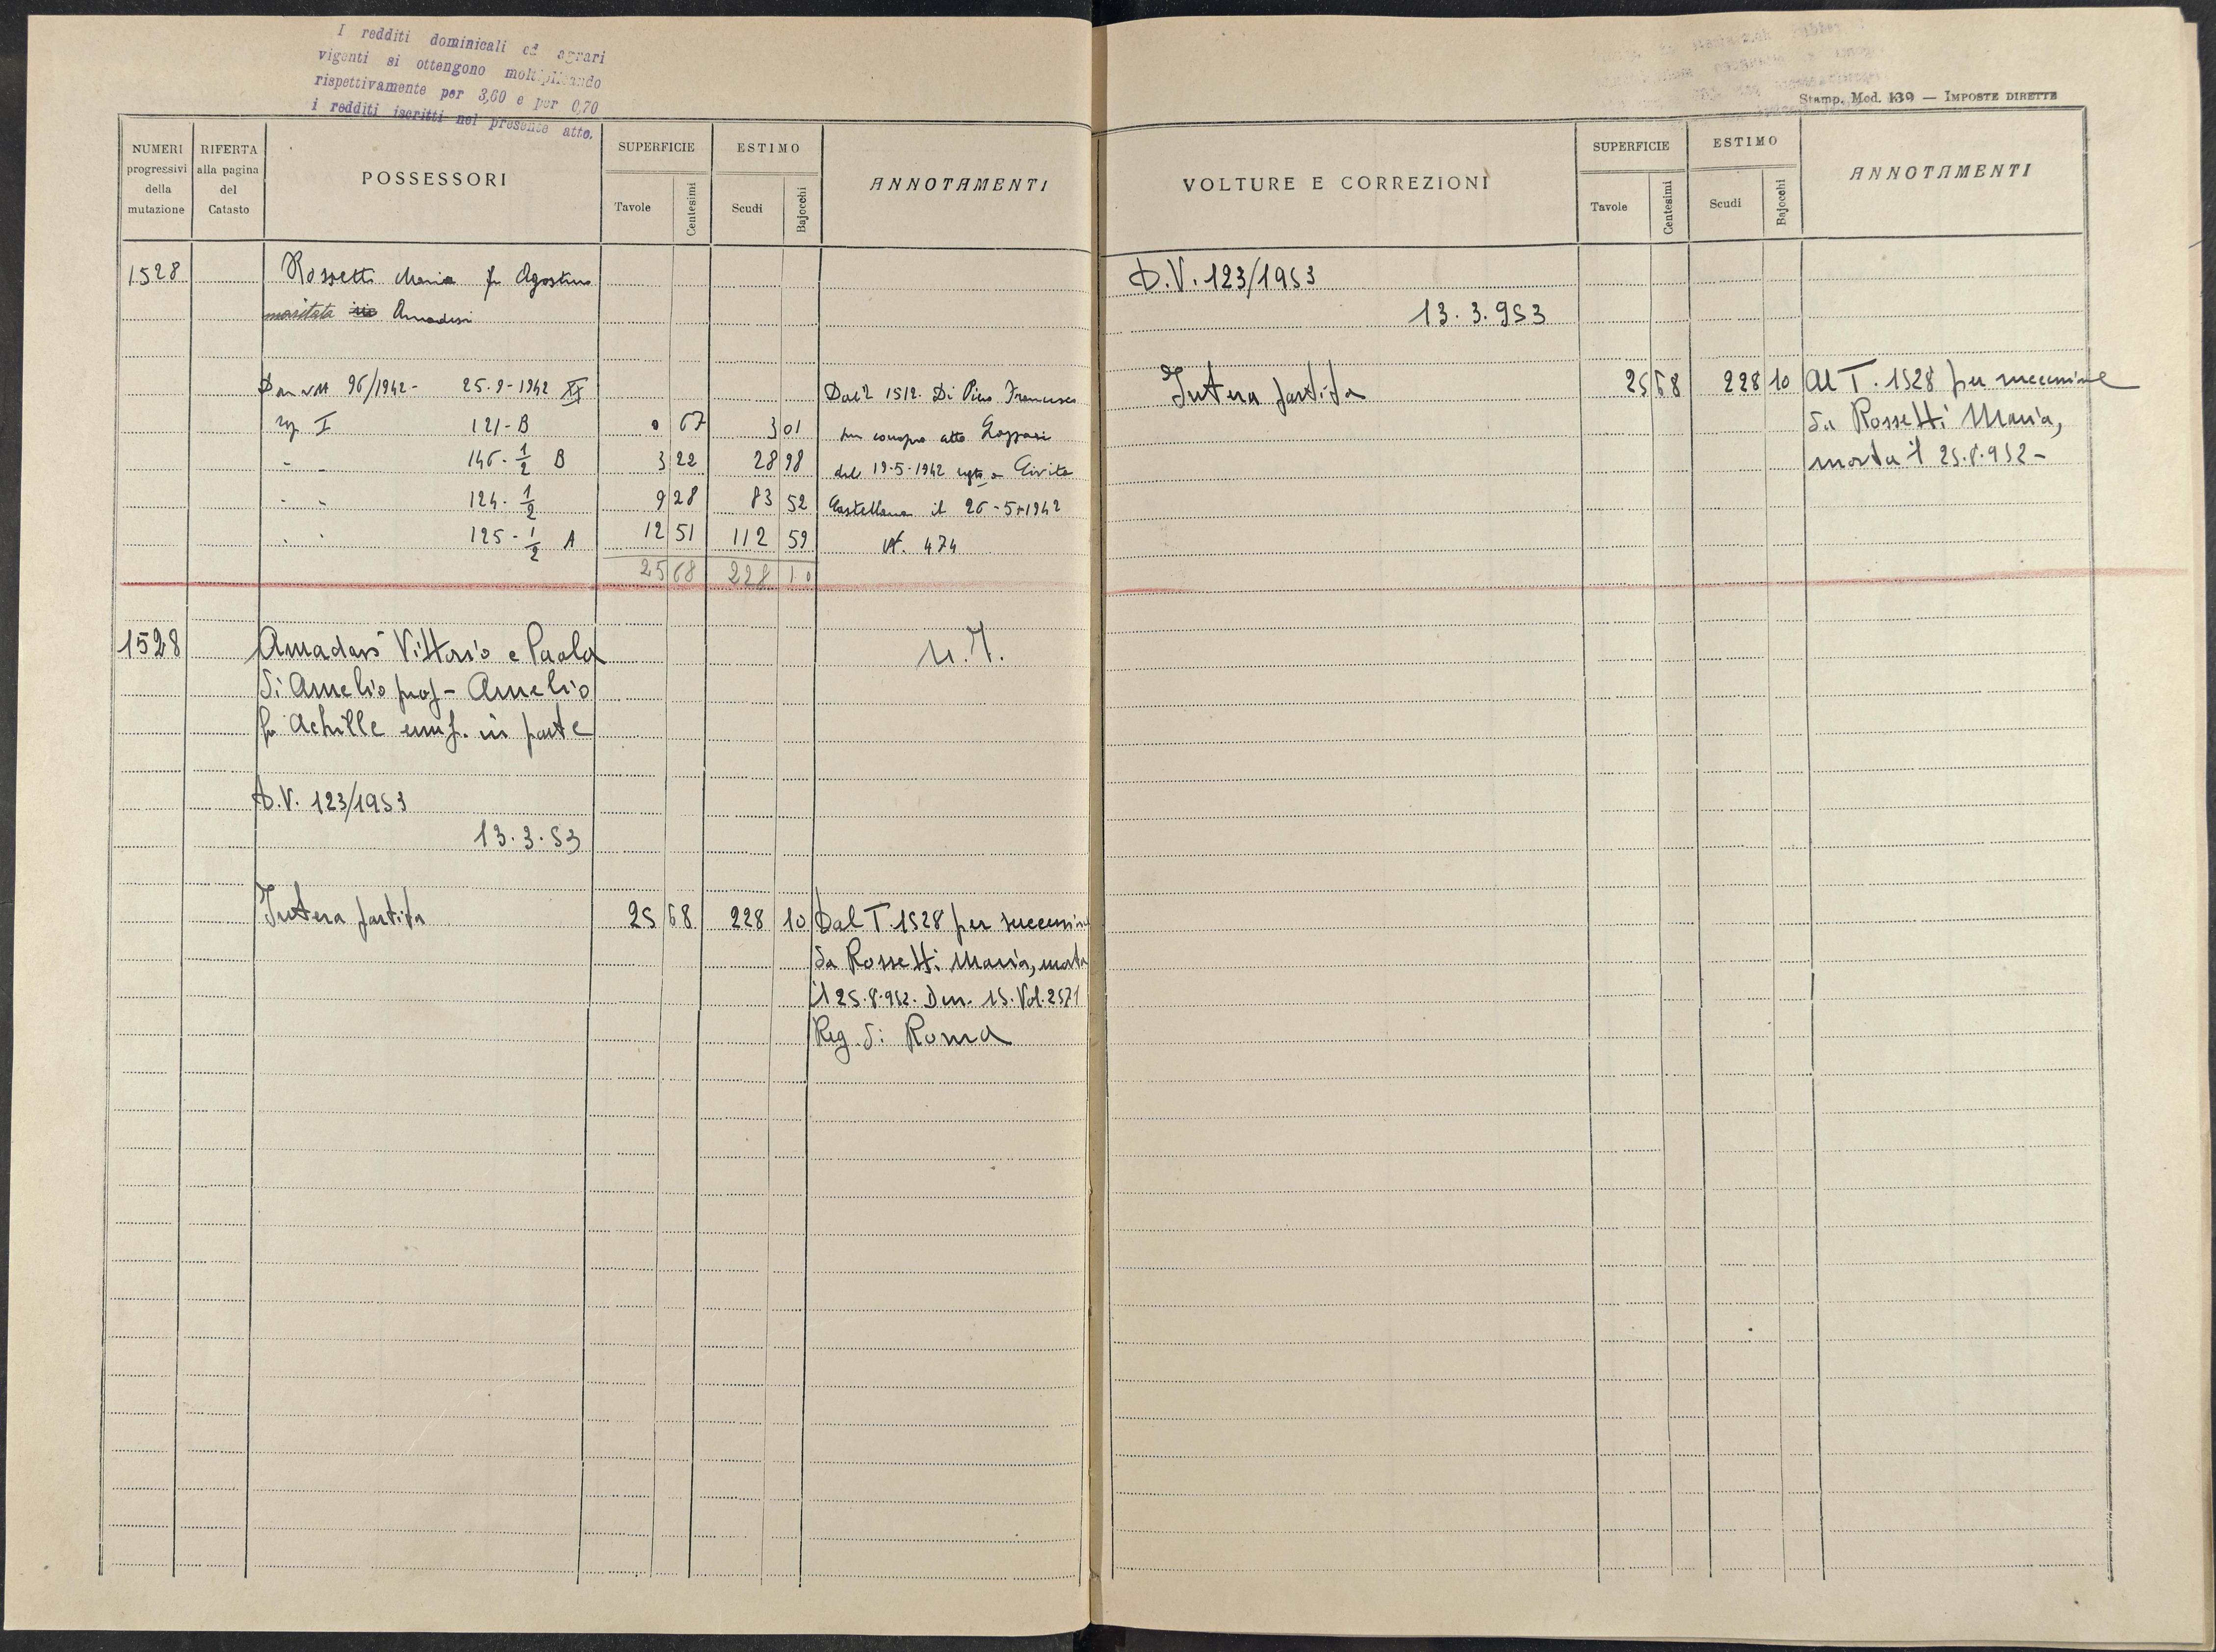 I redditi dominicali ed agrari
vigenti si ottengono moltiplicando
rispettivamente per 3,60 e per 0,70
i redditi iscritti nel presente atto.
NUMERI
progressivi
della
mutazione
RIFERTA
alla pagina
del
Catasto
POSSESSORI
SUPERFICIE
Tavole
Centesimi
ESTIMO
Scudi
Bajocchi
ANNOTAMENTI
1528 Rossetti Maria fu Agostino
maritata Amadesi
96/1942 - 25-9-1942
I 121-B 0 67 3 01
146-1/2 B 3 22 28 98
124-1/2 9 28 83 52
125-1/2 A 12 51 112 59
25 68 228 10
Dal 1512. Di Francesco
atto
del 19-5-1942 a Civita
Castellana il 26-5-1942
N. 474
1528 Amadasi Vittorio e Paola
di Amelio prop - Amelio
fu Achille in parte
D.V. 123/1953
13.3.53
Intera partita 25 68 228 10 Dal T. 1528 per successione
da Rossetti Maria, morta
il 25.8.952. Den. 15. Vol. 2571
Reg. di Roma
Stamp. Mod. 139 — IMPOSTE DIRETTE
VOLTURE E CORREZIONI
SUPERFICIE
Tavole
Centesimi
ESTIMO
Scudi
Bajocchi
ANNOTAMENTI
D.V. 123/1953
13.3.953
Intera partita 25 68 228 10 Al T. 1528 per successione
da Rossetti Maria,
morta il 25.8.952-